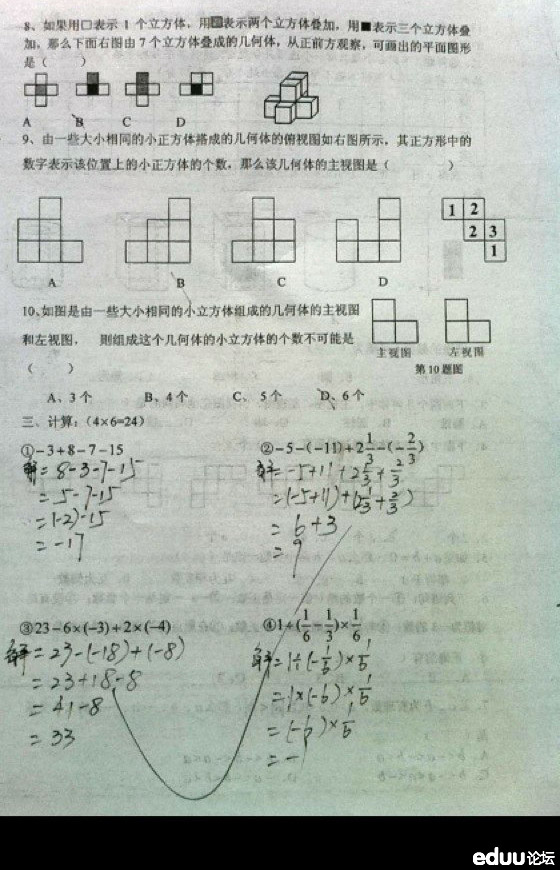 8、如果用□表示 1 个立方体，用▩表示两个立方体叠加，用■表示三个立方体叠
加，那么下面右图由 7 个立方体叠成的几何体，从正前方观察，可画出的平面图形
是（ ）
A B C D
9、由一些大小相同的小正方体搭成的几何体的俯视图如右图所示，其正方形中的
数字表示该位置上的小正方体的个数，那么该几何体的主视图是（ ）
1 2
2 3
1
A B C D
10、如图是由一些大小相同的小立方体组成的几何体的主视图
和左视图， 则组成这个几何体的小立方体的个数不可能是
（ ）
主视图 左视图
第 10 题图
A、3 个 B、4 个 C、 5 个 D、6 个
三、计算：（4×6=24）
①−3+8−7−15
解=8-3-7-15
=5-7-15
=(-2)-15
=-17
②−5−(−11)+2 1/3−(−2/3)
解=-5+11+2 1/3+2/3
=(-5+11)+(2 1/3+2/3)
=6+3
=9
③23−6×(−3)+2×(−4)
解=23-(-18)+(-8)
=23+18-8
=41-8
=33
④1÷(1/6−1/3)×1/6
解=1÷(-1/6)×1/6
=1×(-6)×1/6
=(-6)×1/6
=-1
eduu论坛